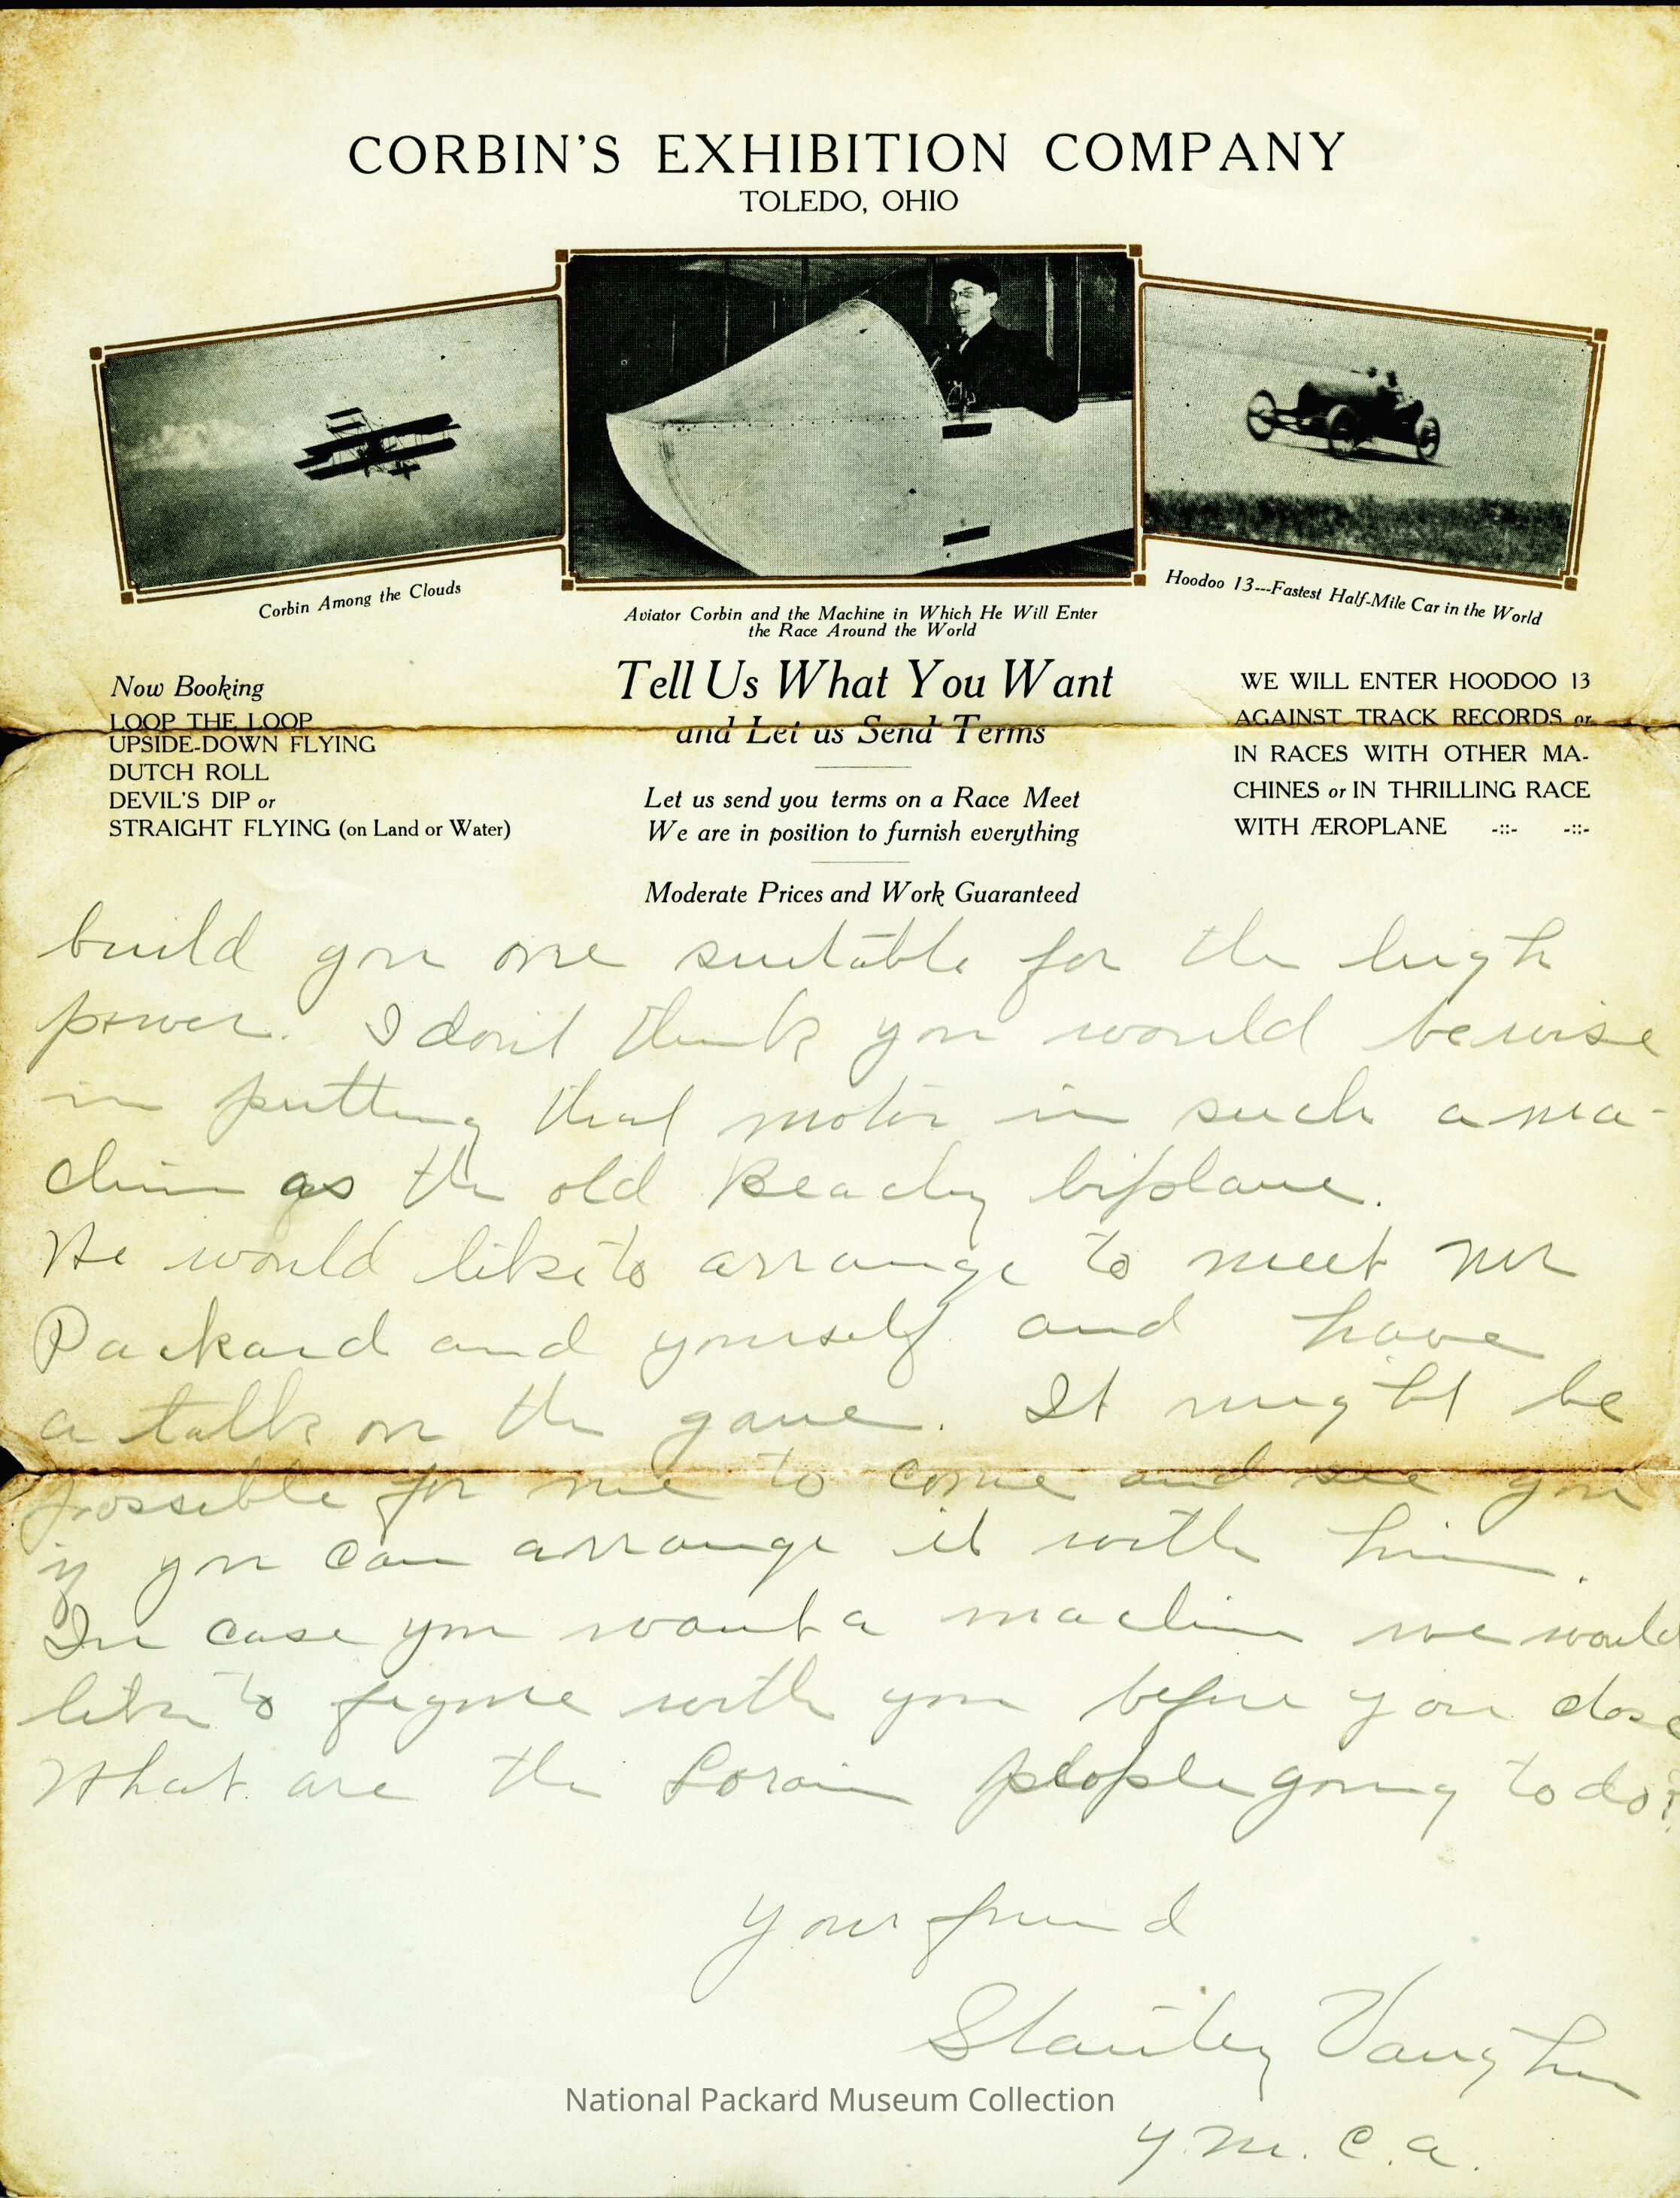 CORBIN'S EXHIBITION COMPANY
TOLEDO, OHIO
Corbin Among the Clouds
Aviator Corbin and the Machine in Which He Will Enter
the Race Around the World
Hoodoo 13---Fastest Half-Mile Car in the World
Now Booking
LOOP THE LOOP
UPSIDE-DOWN FLYING
DUTCH ROLL
DEVIL'S DIP or
STRAIGHT FLYING (on Land or Water)
Tell Us What You Want
and Let us Send Terms
Let us send you terms on a Race Meet
We are in position to furnish everything
Moderate Prices and Work Guaranteed
WE WILL ENTER HOODOO 13
AGAINST TRACK RECORDS or
IN RACES WITH OTHER MA-
CHINES or IN THRILLING RACE
WITH ÆROPLANE -::- -::-
build you one suitable for the high
power. I don't think you would be wise
in putting that motor in such a ma-
chine as the old Beachy biplane.
He would like to arrange to meet Mr
Packard and yourself and have
a talk on the game. It might be
possible for me to come and see you
if you can arrange it with him.
In case you want a machine we would
like to figure with you before you close
What are the Lorain people going to do?
Your friend
Stanley Vaughn
Y.M.C.A.
National Packard Museum Collection